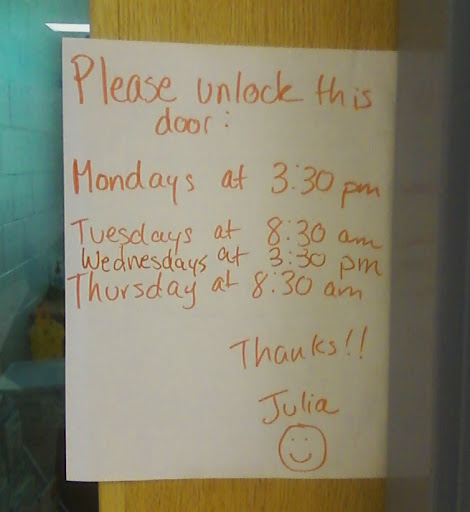 Please unlock this
door:
Mondays at 3:30 pm
Tuesdays at 8:30 am
Wednesdays at 3:30 pm
Thursday at 8:30 am
Thanks!!
Julia